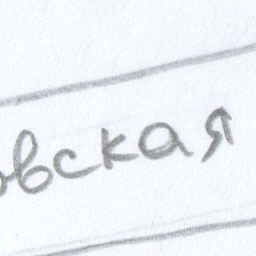 овская